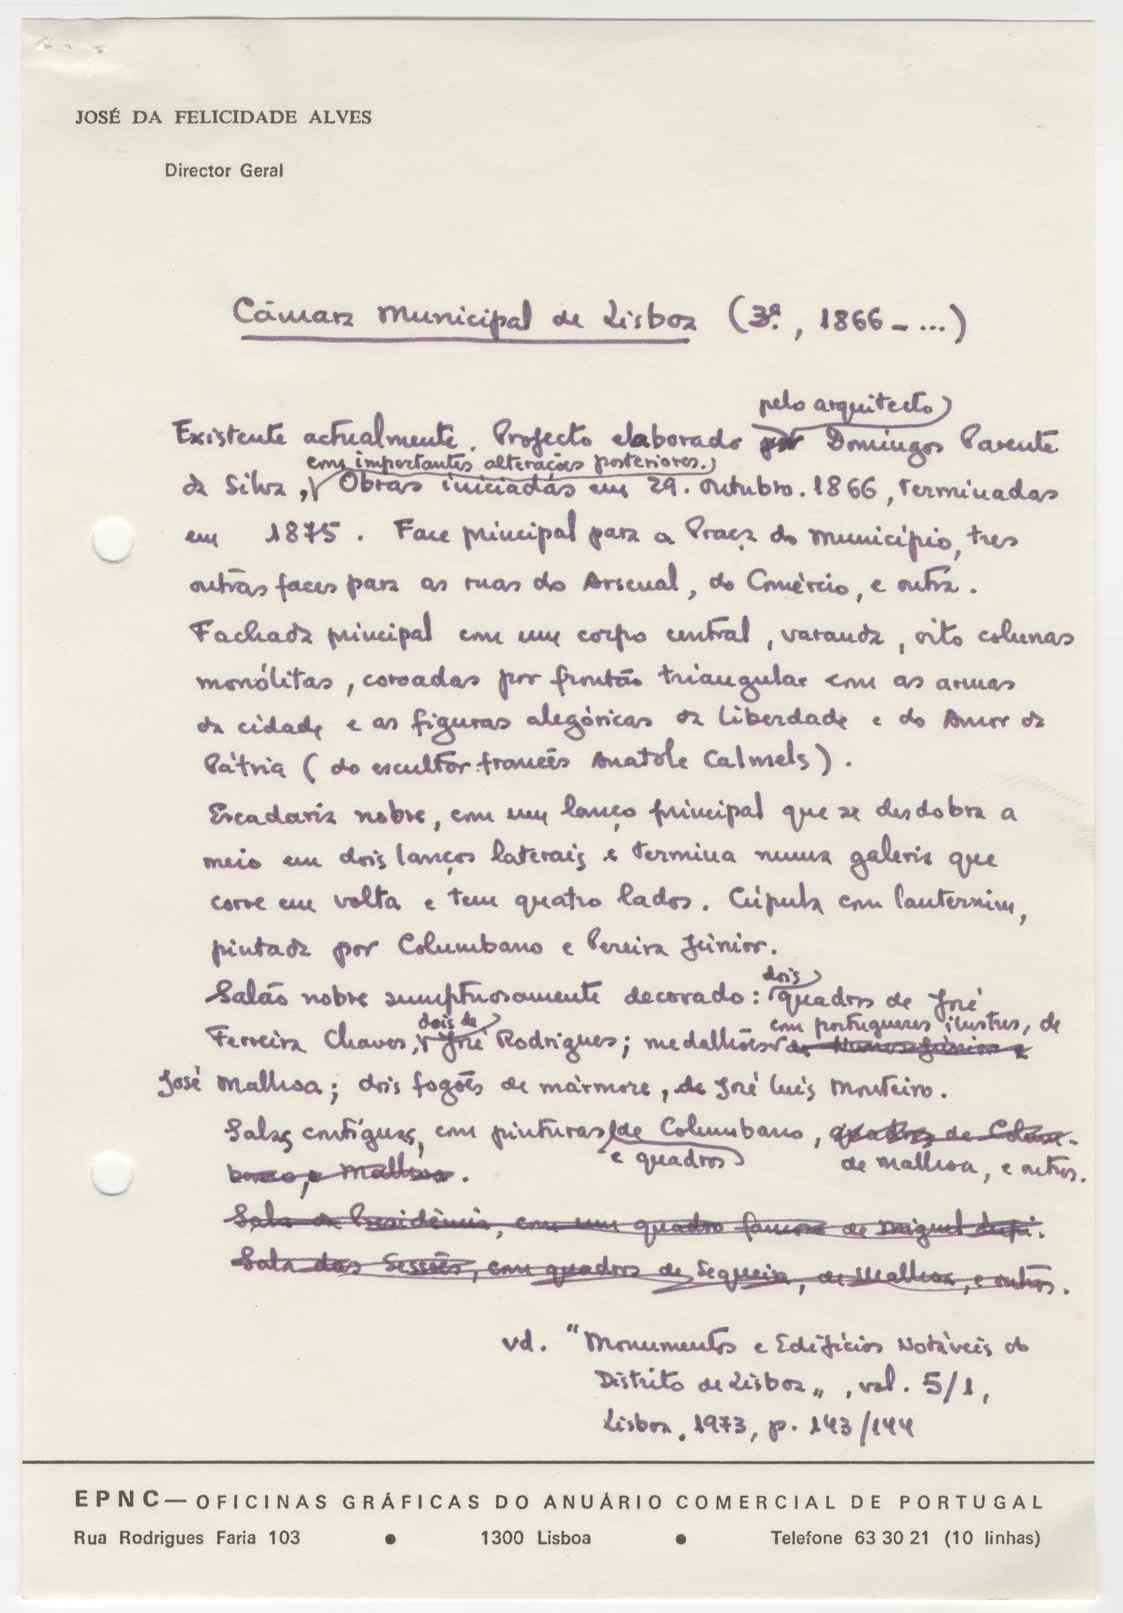 JOSÉ DA FELICIDADE ALVES
Director Geral
Câmara Municipal de Lisboa (3ª., 1866 - ...)
pelo arquitecto
Existente actualmente. Projecto elaborado por Domingos Parente
com importantes alterações posteriores.
da Silva, Obras iniciadas em 29. outubro. 1866, terminadas
em 1875. Face principal para a Praça do Município, tres
outras faces para as ruas do Arsenal, do Comércio, e outra.
Fachada principal com um corpo central, varanda, oito colunas
monólitas, coroadas por frontão triangular com as armas
da cidade e as figuras alegóricas da Liberdade e do Amor da
Pátria (do escultor francês Anatole Calmels).
Escadaria nobre, com um lanço principal que se desdobra a
meio em dois lanços laterais e termina numa galeria que
corre em volta e tem quatro lados. Cúpula com lanternim,
pintada por Columbano e Pereira Júnior.
dois
Salão nobre sumptuosamente decorado: quadros de José
dois de com portugueses ilustres, de
Ferreira Chaves, José Rodrigues; medalhões de Nunes Júnior e
José Malhoa; dois fogões de mármore, de José Luís Monteiro.
Salas contíguas, com pinturas de Columbano, quadros de Colum-
e quadros de Malhoa, e outros.
bano, e Malhoa.
Sala da Presidência, com um quadro famoso de Miguel Lupi.
Sala das Sessões, com quadros de Sequeira, de Malhoa, e outros.
vd. "Monumentos e Edifícios Notáveis do
Distrito de Lisboa", vol. 5/1,
Lisboa, 1973, p. 143/144
EPNC — OFICINAS GRÁFICAS DO ANUÁRIO COMERCIAL DE PORTUGAL
Rua Rodrigues Faria 103 • 1300 Lisboa • Telefone 63 30 21 (10 linhas)